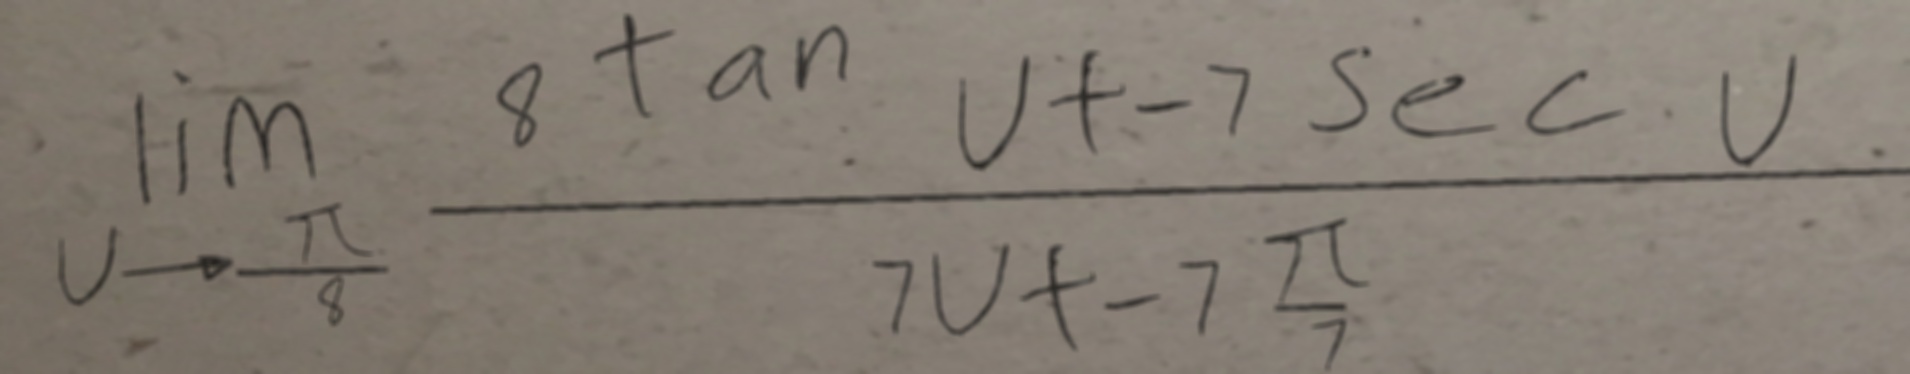 \lim_{U \to \frac{\pi}{8}} \frac{8 \tan U + -7 \sec U}{7U + -7 \frac{\pi}{7}}